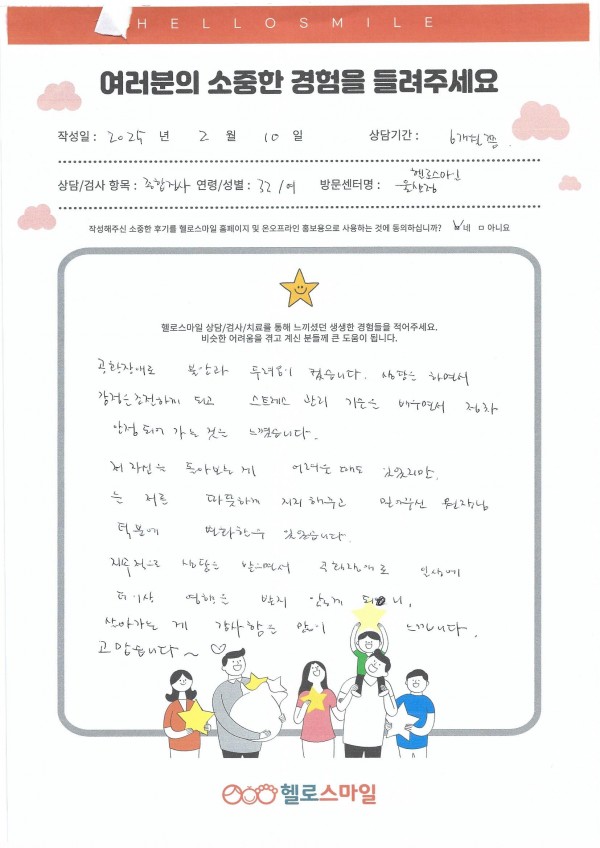 HELLOSMILE
여러분의 소중한 경험을 들려주세요
작성일 : 2025 년 2 월 10 일 상담기간 : 6개월쯤.
상담/검사 항목 : 종합검사 연령/성별 : 32/여 방문센터명 : 헬로스마일 울산점
작성해주신 소중한 후기를 헬로스마일 홈페이지 및 온오프라인 홍보용으로 사용하는 것에 동의하십니까? 네 아니요
헬로스마일 상담/검사/치료를 통해 느끼셨던 생생한 경험들을 적어주세요.
비슷한 어려움을 겪고 계신 분들께 큰 도움이 됩니다.
공황장애로 불안과 두려움이 컸습니다. 상담을 하면서
감정을 조절하게 되고 스트레스 관리 기술을 배우면서 점차
안정되어 가는 것을 느꼈습니다.
저 자신을 돌아보는게 어려운 때도 있었지만,
늘 저를 따뜻하게 지지해주고 믿어주신 원장님
덕분에 변화할수 있었습니다.
지속적으로 상담을 받으면서 공황장애로 일상에
더이상 영향을 받지 않게 되니,
살아가는 게 감사함을 많이 느낍니다.
고맙습니다~ ♡
헬로스마일